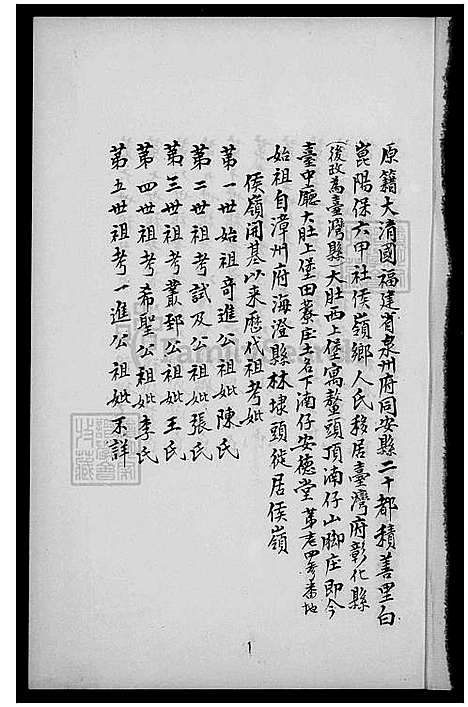 原籍大清國福建省泉州府同安縣二十都積善里白
崑陽保六甲社侯嶺鄉人民移居臺灣府彰化縣
(後改為臺灣縣)大肚西上堡寓鰲頭頂湳仔山腳庄即今
臺中廳大肚上堡田藔庄土名下湳仔安德堂 第 番地
始祖自漳州府海澄縣林埭頭徙居侯嶺
侯嶺開基以來歷代祖考妣
第一世始祖奇進公祖妣陳氏
第二世祖考試及公祖妣張氏
第三世祖考叢郅公祖妣王氏
第四世祖考希聖公祖妣李氏
第五世祖考一進公祖妣不詳
1